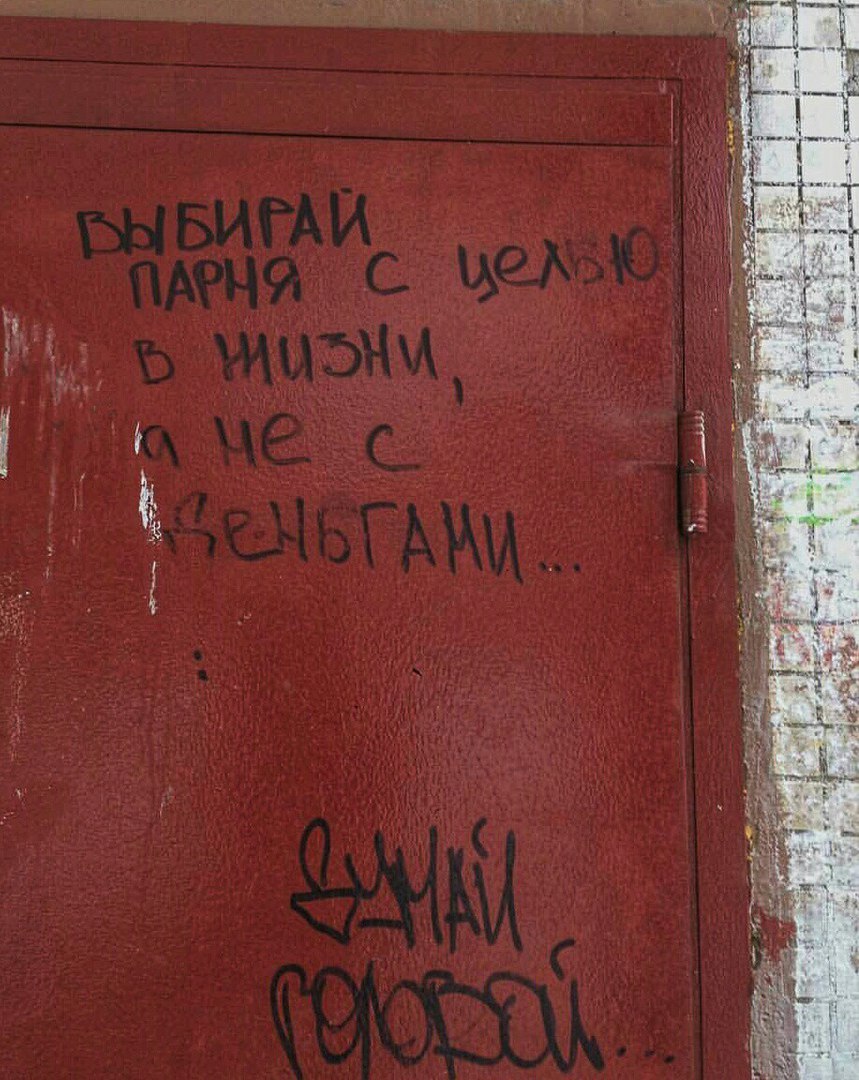 ВЫБИРАЙ
ПАРНЯ С целью
В ЖИЗНИ,
а не с
деньГАМИ...
ДУМАЙ
ГОЛОВОЙ...